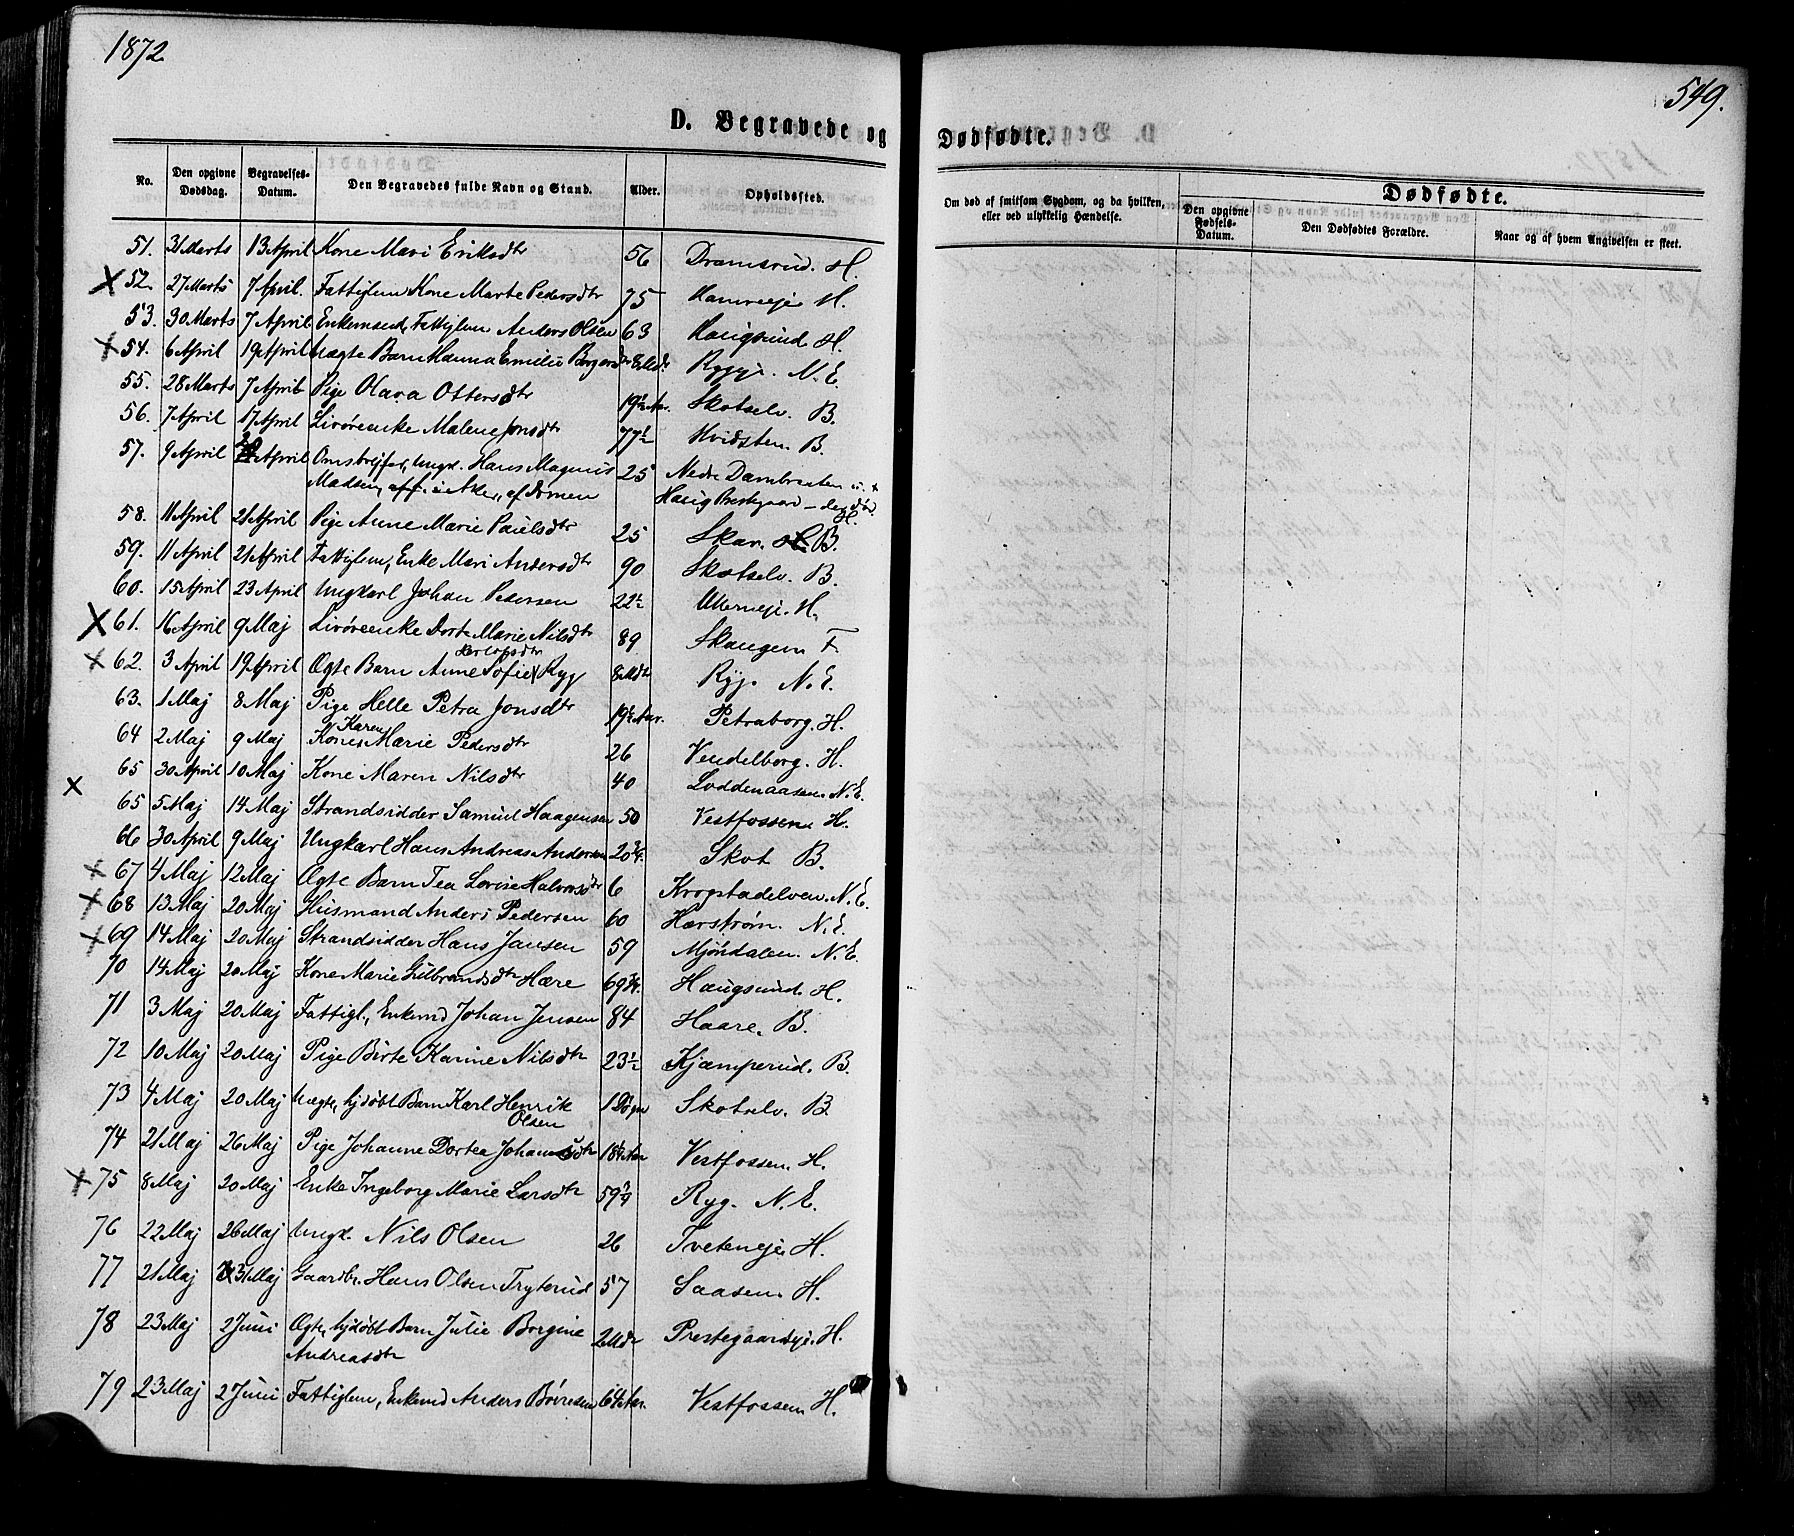 1872
549.
D. Begravede og Dødfødte.
No. Den opgivne Dødsdag. Begravelses-Datum. Den Begravedes fulde Navn og Stand. Alder. Opholdssted.
Om død af smitsom Sygdom, og da hvilken, eller ved ulykkelig Hændelse. Dødfødte.
Den opgivne Fødsels-Datum. Den Dødfødtes Forældre. Naar og af hvem Angivelsen er skeet.
51. 31 Marts 13 April Kone Mari Eriksdtr 56 Dramsrud. H.
X 52. 27 Marts 7 April. Fattiglem Kone Marte Pedersdtr 75 H.
53. 30 Marts 7 April Enkemand, Fattiglem Anders Olsen 63 Haugsund H.
X 54. 6 April 19 April Uægte Barn Hanna Emilie 8 Mdr N. E.
55. 28 Marts 7 April Pige Olava Ottersdtr 19½ Aar. Skotselv. B.
56. 7 April 17 April Livøreenke Malene Jonsdtr 77½ Hvidsten B.
57. 9 April April Ungk. Hans Magnus 25 Nedre
Madsen, Aker, af
58. 11 April 21 April Pige Anne Marie Paulsdtr 25 Skar. B.
59. 11 April 21 April Fattiglem, Enke Mari Andersdtr 90 Skotselv. B.
60. 15 April 23 April Ungkarl Johan Pedersen 22½ H.
X 61. 16 April 9 Maj Livøreenke Dorte Marie Nilsdtr 89 Skaugen F.
X 62. 3 April 19 April Ægte Barn Anne Sofie Ryg 8 Mdr Ryg. N. E.
63. 1 Maj 8 Maj Pige Helle Petra Jonsdtr 19½ Aar. Petraborg. H.
Karen
64 2 Maj 9 Maj Kone Marie Pedersdtr 26 Vendelborg. H.
X 65 30 April 10 Maj Kone Maren Nilsdtr 40 Loddenaasen N. E.
65 5 Maj 14 Maj Strandsidder Samuel Haagensen 50 Vestfossen H.
66 30 April 9 Maj Ungkarl Hans Andreas Andersen 20¾. Skot B.
X 67 4 Maj 12 Maj Ægte Barn Tea Lovise Halvorsdtr 6 Krogstadelven. N. E.
X 68 13 Maj 20 Maj Husmand Anders Pedersen 60 Hærstrøm. N. E.
X 69 14 Maj 20 Maj Strandsidder Hans Jansen 59 Mjöndalen. N. E.
70 14 Maj 20 Maj Kone Marie Gulbrandsdtr Hære 69¾. Haugsund H.
71 3 Maj 20 Maj Fattigl., Enkemd Johan Jensen 84 Haare. B.
72 10 Maj 20 Maj Pige Birte Karine Nilsdtr 23½ Kjæmperud. B.
73 4 Maj 20 Maj Uægte, hjdøbt Barn Karl Henrik 1 Døgn Skotselv. B
Olsen
74 21 Maj 26 Maj Pige Johanne Dortea Johansdtr 18¼ Aar Vestfossen H.
X 75 8 Maj 20 Maj Enke Ingeborg Marie Larsdtr 59 Ryg. N. E.
76 22 Maj 26 Maj Ungk. Nils Olsen 26 Tveteneje H.
77 21 Maj 31 Maj Gaardbr. Hans Olsen Tryterud 57 Saasen H.
78 23 Maj 2 Juni Ægte, hjdøbt Barn Julie Borgine 2 Mdr Prestegaardseje. H.
Andreasdtr
79 23 Maj 2 Juni Fattiglem, Enkemd Anders Børresen 64 Aar. Vestfossen H.